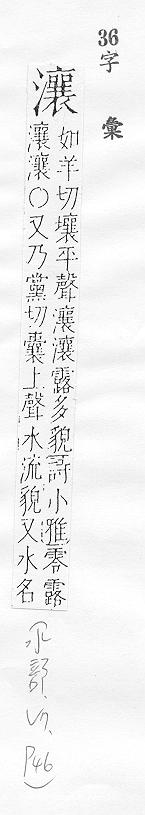 36
字彙
瀼
如羊切壤平聲瀼瀼露多貌詩小雅零露
瀼瀼○又乃黨切囊上聲水流貌又水名
水部、
P46)